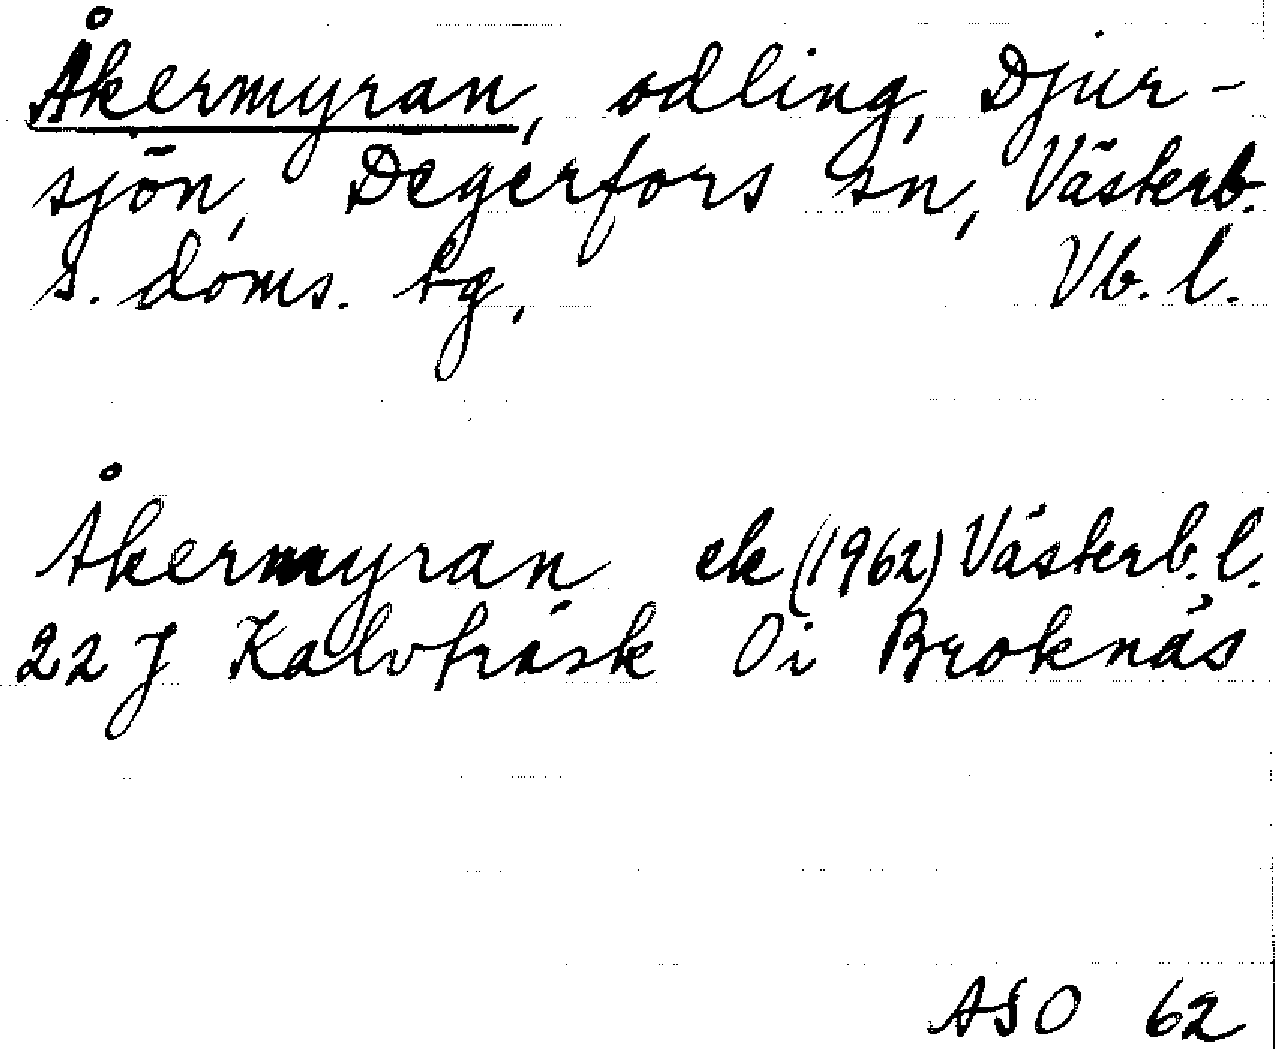 Åkermyran, odling, Djur-
sjön, Degerfors sn, Västerb.
s. doms. tg, Vb. l.
Åkermyran ek (1962) Västerb. l.
22 J Kalvträsk Oi Broknäs
ASO 62